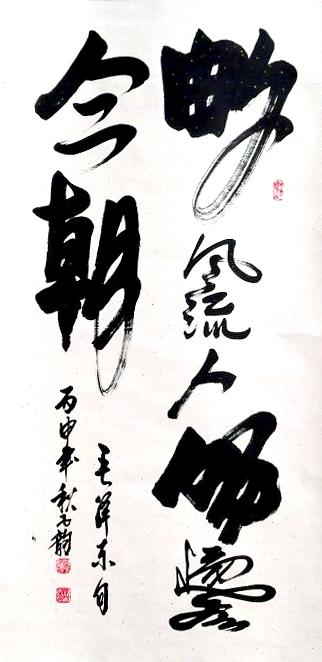 数风流人物还看
今朝
毛泽东句
丙申年秋